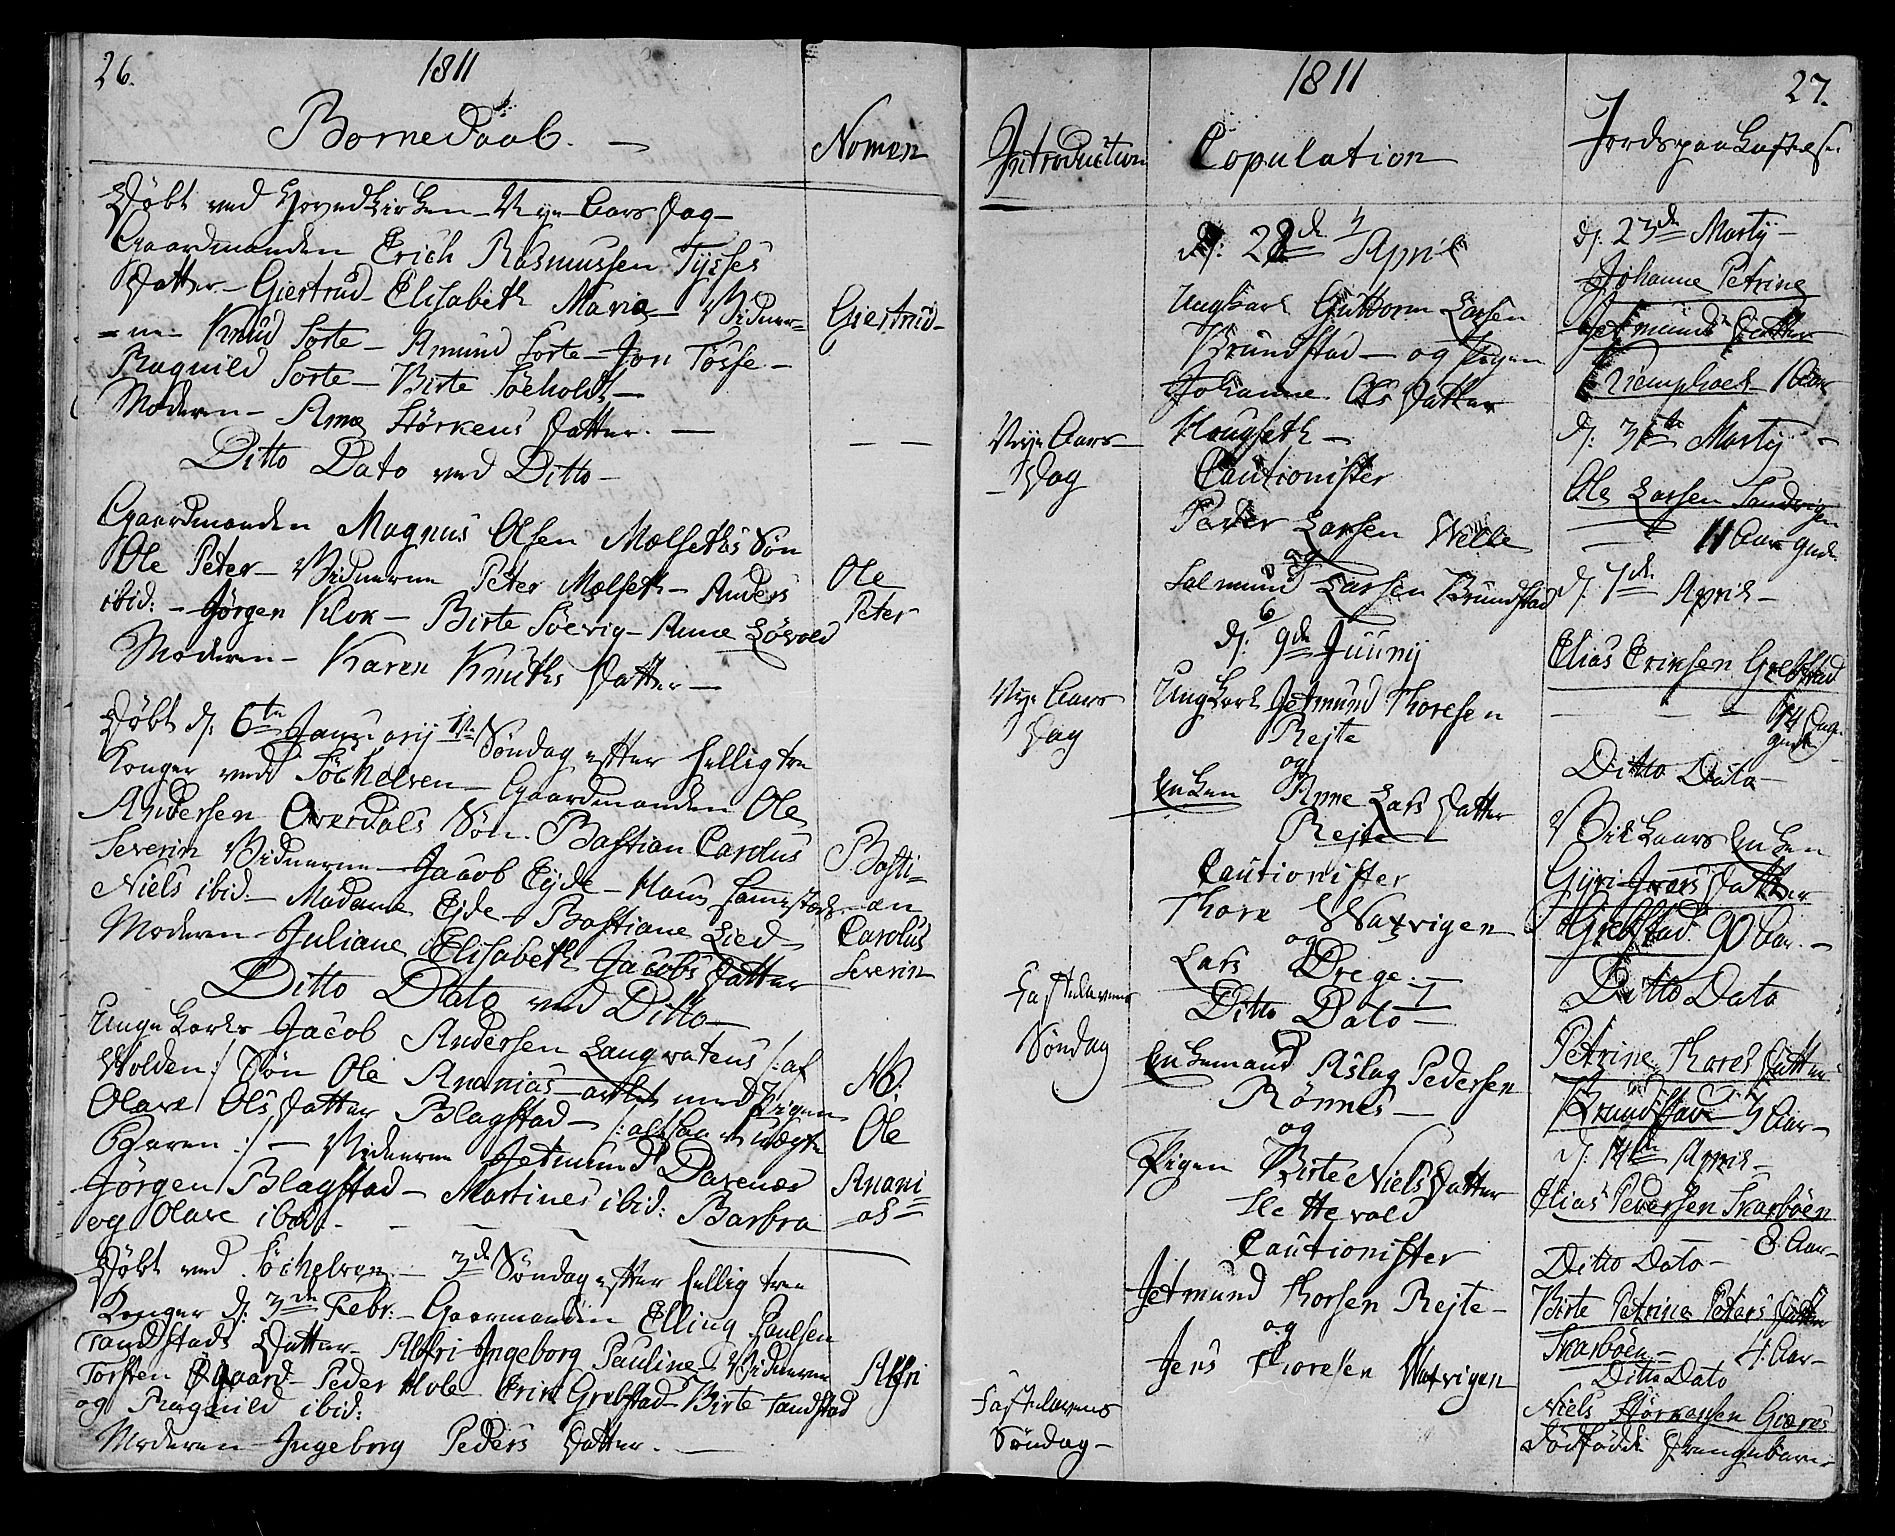 26.
1811
Borne Daab. —
Nomen
Døbt ved Hovedkirken – Nye Aars Dag –
Gaardmanden Erich Rasmussen Tysses
Datter – Giertrud Elisabeth Maria – Vidner=
=ne Knud Sorte – Amund Sorte – Jon Tosse –
Ragnild Sorte – Birte Söeholdt –
Moderen – Anne Störkens Datter. —
Giertrud –
Ditto Dato ved Ditto –
Gaardmanden Magnus Olsen Mælseths Søn
Ole Peter – Vidnerne Peter Mælseth – Anders
ibid: – Jørgen Klok – Birte Söevig – Anne Løvold
Moderen – Karen Knuths Datter –
Ole
Peter
Døbt d: 6te Januarij 1te Søndag efter hellig tre
Konger ved Söcholven – Gaardmanden Ole
Andersen Overdals Søn. Bastian Carolus
Severin Vidnerne – Jacob Eyde – Hans
Niels ibid – Madame Ejde – Bastiane Lied –
Moderen – Juliane Elisabeth Jacobs Datter
Basti-
-an
Carolus
Severin
Ditto Dato ved Ditto –
Unge Karls Jacob Andersen Langvatens /: af
Wolden :/ Søn Ole Ananias – avlet med Pigen
Olave Ols Datter Blagstad – /: altsaa Uægte
:/ – Vidnerne Jetmund Davenæs
Jørgen Blagstad – Martines ibid: Barbra
og Olave ibid: –
Ole
Anani=
=as
Døbt ved Söcholven – 3de Søndag efter hellig tre
Konger d: 3de Febr: – Gaarmanden Elling Poulsen
Tandstads Datter – Albri Ingeborg Pauline – Vidnerne
Torsten – Peder Hole – Erik Grebstad – Birte Tandstad
og Ragnild ibid:
Moderen – Ingeborg Peders Datter. —
Albri
27.
1811
Introduction
Nye Aars
– Dag
Nye Aars
Dag
Fastelavens
Søndag
Fastelavens
Søndag –
Copulation
d: 28de April
Ungkarl Guttorm Larsen
Brundstad – og Pigen
Johanne Ols Datter
Haugseth –
Cautionister
Peder Larsen Welle
og
Salmund Larsen Brundstad
d: 9de Juunij
Ungkarl Jetmund Thoresen
Rejte
og
Enken Anne Lars Datter
Rejte
Cautionister
Thore Watvigen
og
Lars Drege. –
Ditto Dato –
Enkemand Aslag Pedersen
Rönnes –
og
Pigen Birte Niels Datter
Slettevold
Cautionister
Jetmund Thorsen Rejte –
og
Jens Thoresen Watvigen
Jordspaakastelse
d: 23de Martij –
Johanne Petrine
Jetmunds Datter
1 Aar
d: 31te Martij –
Ole Larsen Sandvigen
11 Aar gml.
d: 7de April –
Elias Eriksen Grebstad
14 Dage
gml.
Ditto Dato
Vilkaars Enken
Gyri Ivers Datter
Grebstad 90 Aar. –
Ditto Dato
Petrine Thores Datter
Brundstad 3 Aar –
d: 14de April –
Elias Pedersen Skarböen
8 Aar –
Ditto Dato –
Birte Petrine Peders Datter
Skarböen – 4 Aar –
Ditto Dato
Niels Störkersen Giæres
Dødfødde Drengebarn –